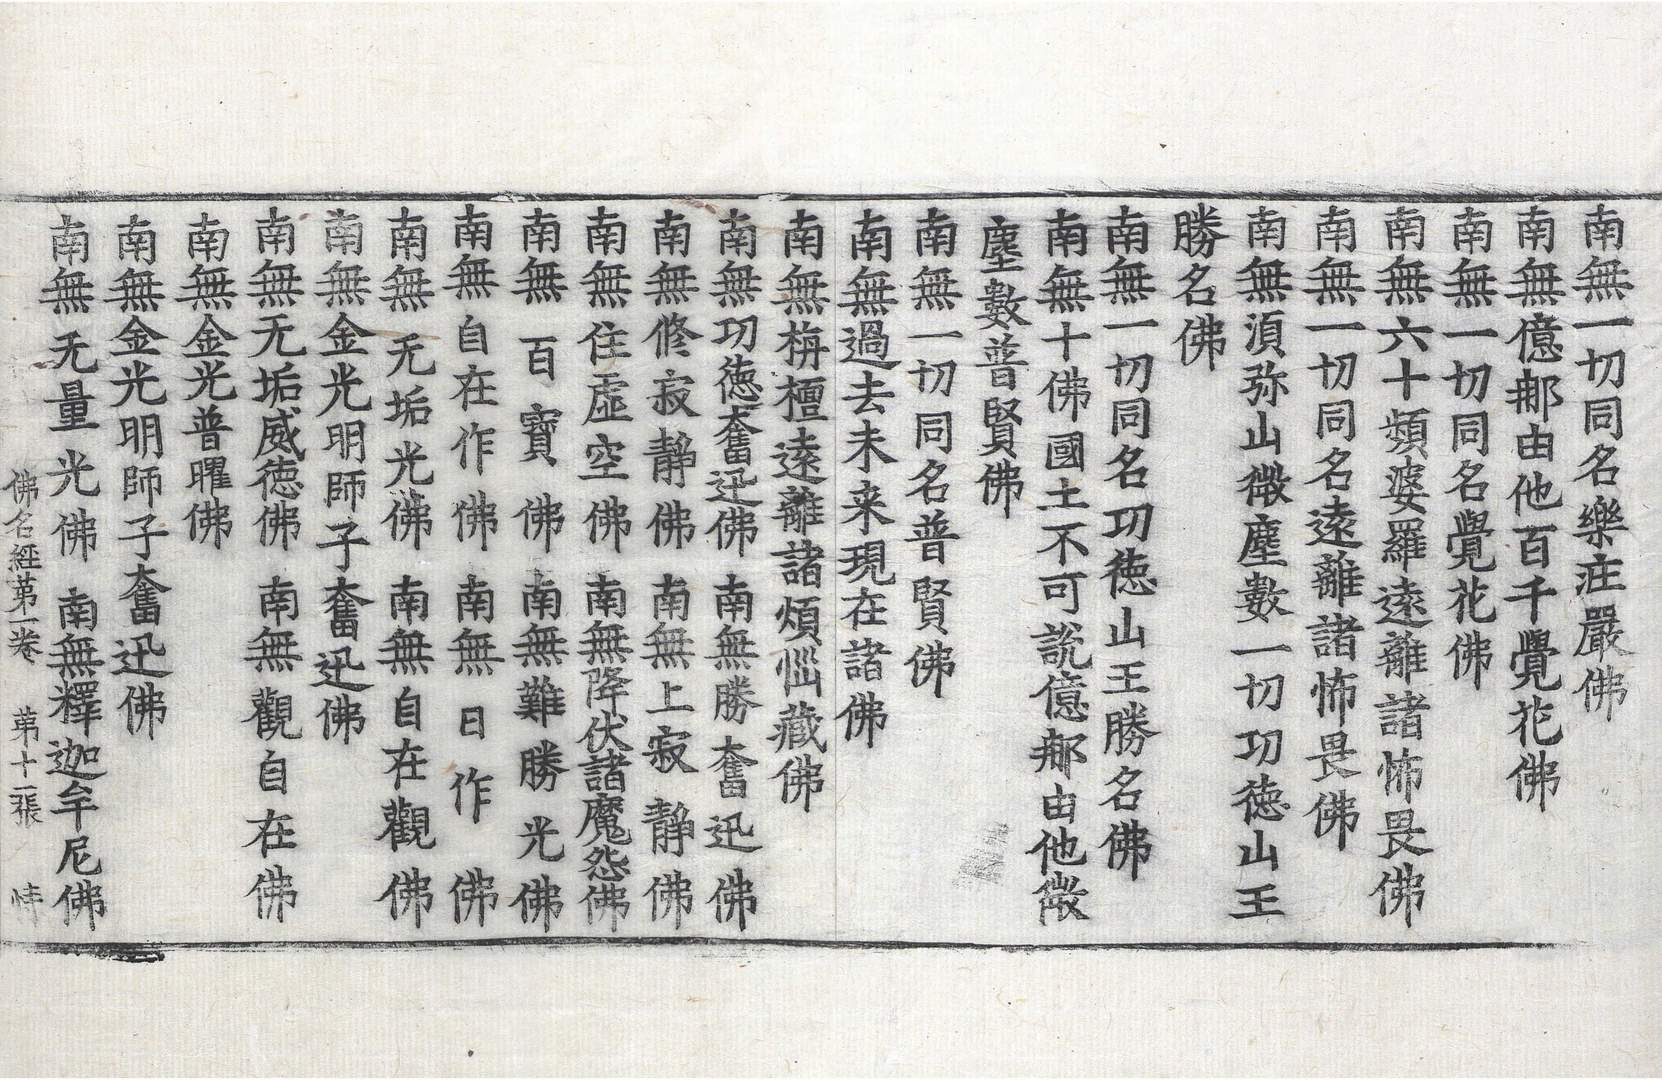 南無一切同名樂庄嚴佛
南無億那由他百千覺花佛
南無一切同名覺花佛
南無六十頻婆羅遠離諸怖畏佛
南無一切同名遠離諸怖畏佛
南無湏弥山微塵數一切功徳山王
勝名佛
南無一切同名功徳山王勝名佛
南無十佛國土不可說億那由他微
塵數普賢佛
南無一切同名普賢佛
南無過去未来現在諸佛
南無栴檀遠離諸煩惱藏佛
南無功徳奮迅佛 南無勝奮迅佛
南無修寂静佛 南無上寂静佛
南無住虛空佛 南無降伏諸魔怨佛
南無百寶佛 南無難勝光佛
南無自在作佛 南無日作佛
南無无垢光佛 南無自在觀佛
南無金光明師子奮迅佛
南無无垢威徳佛 南無觀自在佛
南無金光普曜佛
南無金光明師子奮迅佛
南無无量光佛 南無釋迦牟尼佛
佛名經苐一卷 苐十二張